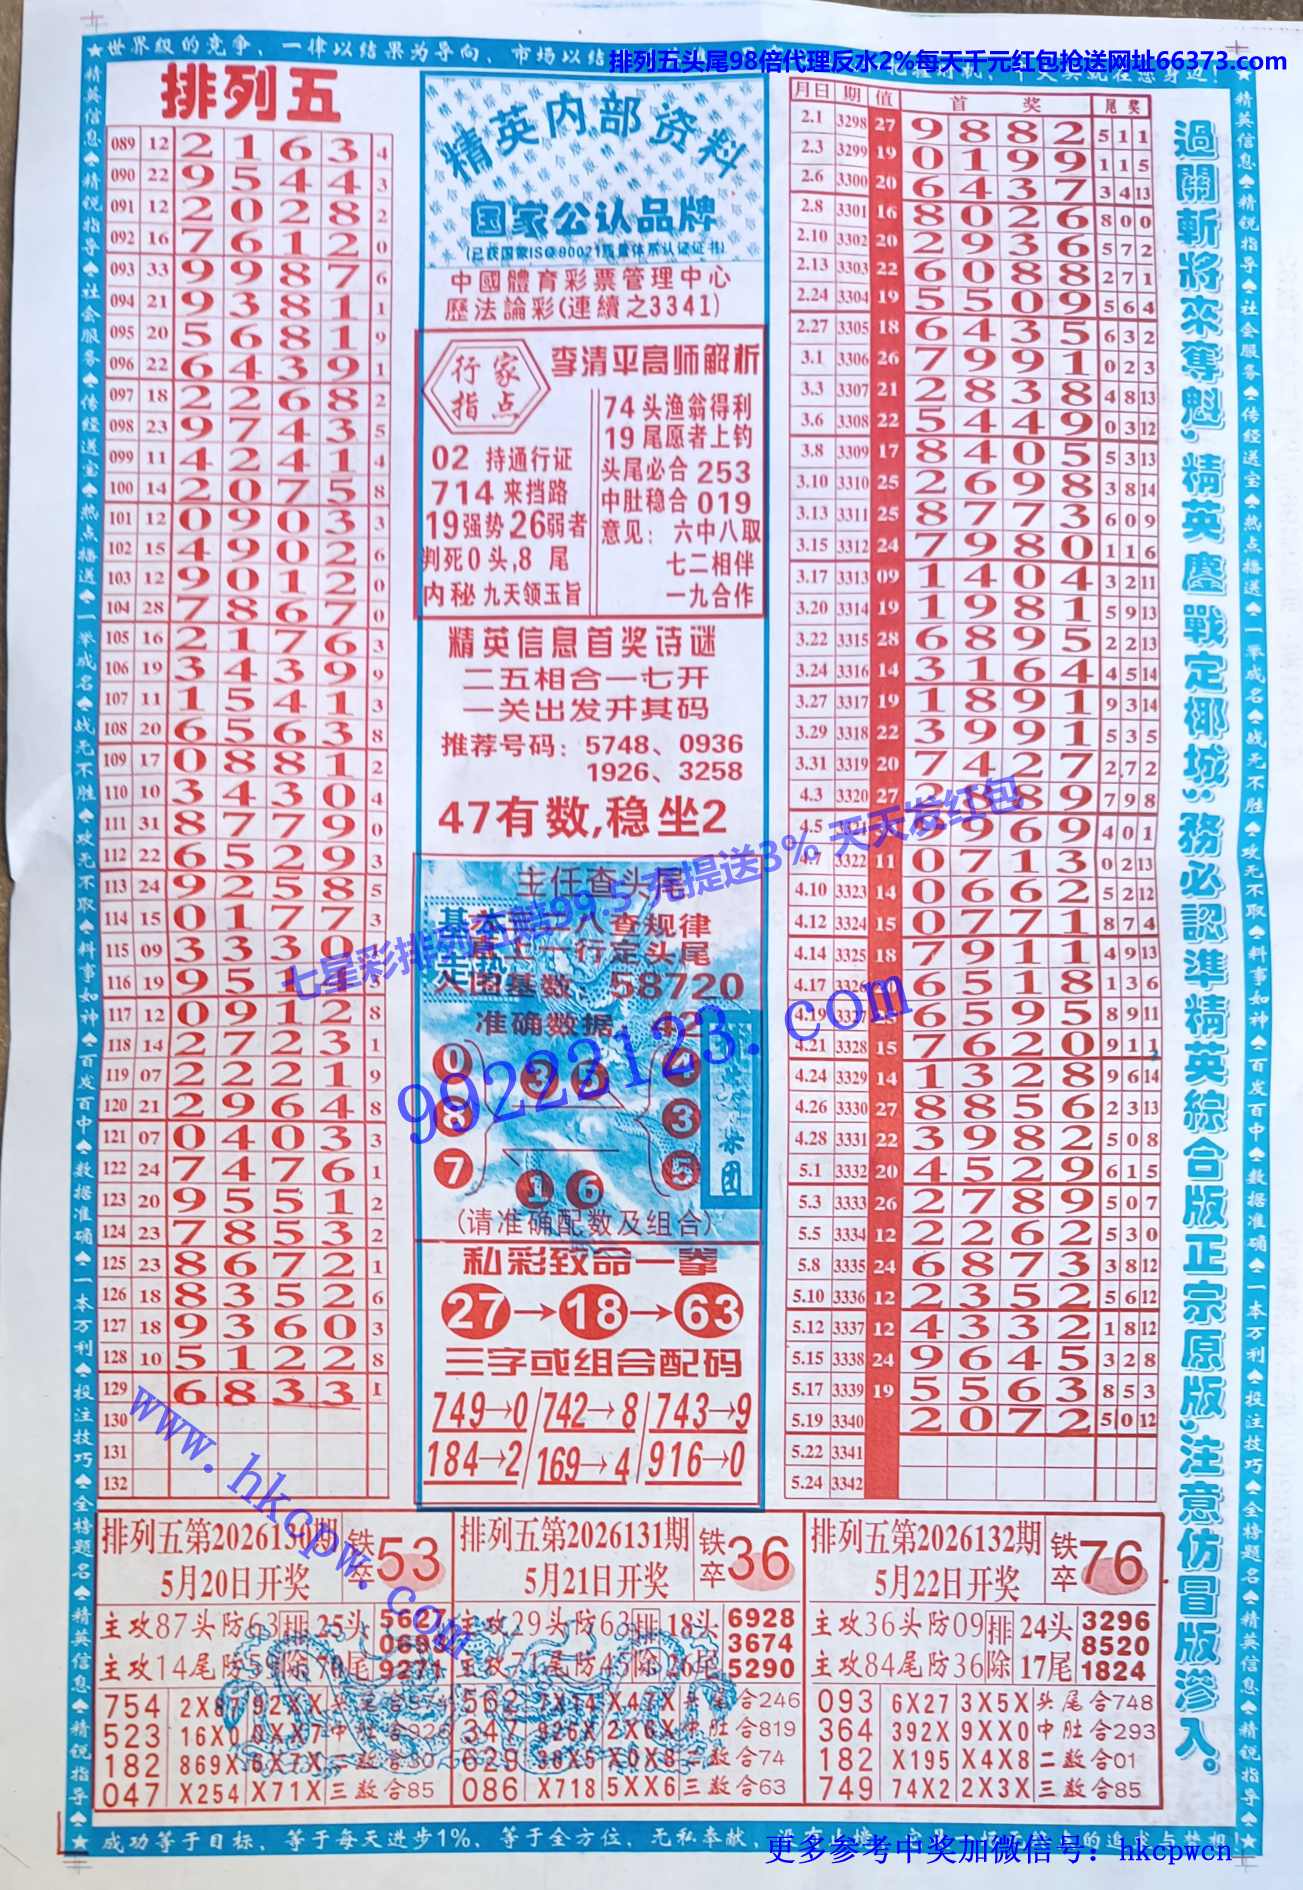 ★世界级的竞争、一律以结果为导向、市场以结
排列五头尾98倍代理反水2%每天千元红包抢送网址66373.com
排列五
089 12 2 1 6 3 4
090 22 9 5 4 4 3
091 12 2 0 2 8 2
092 16 7 6 1 2 0
093 33 9 9 8 7 6
094 21 9 3 8 1 1
095 20 5 6 8 1 9
096 22 6 4 3 9 1
097 18 2 2 6 8 2
098 23 9 7 4 3 5
099 11 4 2 4 1 4
100 14 2 0 7 5 8
101 12 0 9 0 3 3
102 15 4 9 0 2 6
103 12 9 0 1 2 0
104 28 7 8 6 7 0
105 16 2 1 7 6 3
106 19 3 4 3 9 9
107 11 1 5 4 1 3
108 20 6 5 6 3 8
109 17 0 8 8 1 2
110 10 3 4 3 0 4
111 31 8 7 7 9 0
112 22 6 5 2 9 3
113 24 9 2 5 8 5
114 15 0 1 7 7 3
115 09 3 3 3 0
116 19 9 5 1 4
117 12 0 9 1 2 8
118 14 2 7 2 3 1
119 07 2 2 2 1 9
120 21 2 9 6 4 8
121 07 0 4 0 3 3
122 24 7 4 7 6 1
123 20 9 5 5 1 2
124 23 7 8 5 3 2
125 23 8 6 7 2 1
126 18 8 3 5 2 6
127 18 9 3 6 0 3
128 10 5 1 2 2 8
129 6 8 3 3 1
130
131
132
精英内部资料
国家公认品牌
(已获国家ISO90021质量体系认证证书)
中國體育彩票管理中心
歷法論彩(連續之3341)
行家指点
李清平高师解析
02 持通行证
714来挡路
19强势26弱者
判死0头,8 尾
内秘 九天领玉旨
74头渔翁得利
19尾愿者上钓
头尾必合253
中肚稳合019
意见：六中八取
七二相伴
一九合作
精英信息首奖诗谜
二五相合一七开
一关出发开其码
推荐号码：5748、0936
1926、3258
47有数,稳坐2
主任查头尾
八查规律
行定头尾
基数：58720
准确数据：42
0 8 7
3
1 6
3 5
集团
(请准确配数及组合)
私彩致命一拳
27→18→63
三字或组合配码
749→0/742→8/743→9
184→2/169→4/916→0
月日 期 值 首奖 尾奖
2.1 3298 27 9 8 8 2 5 1 1
2.3 3299 19 0 1 9 9 1 1 5
2.6 3300 20 6 4 3 7 3 4 13
2.8 3301 16 8 0 2 6 8 0 0
2.10 3302 20 2 9 3 6 5 7 2
2.13 3303 22 6 0 8 8 2 7 1
2.24 3304 19 5 5 0 9 5 6 4
2.27 3305 18 6 4 3 5 6 3 2
3.1 3306 26 7 9 9 1 0 2 3
3.3 3307 21 2 8 3 8 4 8 13
3.6 3308 22 5 4 4 9 0 3 12
3.8 3309 17 8 4 0 5 5 3 13
3.10 3310 25 2 6 9 8 3 8 14
3.13 3311 25 8 7 7 3 6 0 9
3.15 3312 24 7 9 8 0 1 1 6
3.17 3313 09 1 4 0 4 3 2 11
3.20 3314 19 1 9 8 1 5 9 13
3.22 3315 28 6 8 9 5 2 2 13
3.24 3316 14 3 1 6 4 4 5 14
3.27 3317 19 1 8 9 1 9 3 14
3.29 3318 22 3 9 9 1 5 3 5
3.31 3319 20 7 4 2 7 2 7 2
4.3 3320 27 8 9 7 9 8
4.5 9 6 9 4 0 1
4.7 3322 11 0 7 1 3 0 2 13
4.10 3323 14 0 6 6 2 5 2 12
4.12 3324 15 0 7 7 1 8 7 4
4.14 3325 18 7 9 1 1 4 9 13
4.17 3326 6 5 1 8 1 3 6
4.19 3327 6 5 9 5 8 9 11
4.21 3328 15 7 6 2 0 9 1 1
4.24 3329 14 1 3 2 8 9 6 14
4.26 3330 27 8 8 5 6 2 3 13
4.28 3331 22 3 9 8 2 5 0 8
5.1 3332 20 4 5 2 9 6 1 5
5.3 3333 26 2 7 8 9 5 0 7
5.5 3334 12 2 2 6 2 5 3 0
5.8 3335 24 6 8 7 3 3 8 12
5.10 3336 12 2 3 5 2 5 6 12
5.12 3337 12 4 3 3 2 1 8 12
5.15 3338 24 9 6 4 5 3 2 8
5.17 3339 19 5 5 6 3 8 5 3
5.19 3340 2 0 7 2 5 0 12
5.22 3341
5.24 3342
過關斬將來奪魁,精英鏖戰定椰城；務必認準精英綜合版正宗原版,注意仿冒版滲入。
七星彩排列五赔99.5 充提送3% 天天发红包
99222123.com
www.hkcpw.com
排列五第2026130期
5月20日开奖
铁卒53
主攻87头防63 排除 25头
主攻14尾防59 70尾
5627
069
9271
754 2X87 92XX
523 16X0 0XX7
182 869X 6X7X
047 X254 X71X 三数合85
排列五第2026131期
5月21日开奖
铁卒36
主攻29头防63 排除 18头
主攻71尾防45 26尾
6928
3674
5290
562 7X14 X47X 头尾合246
347 926X 2X6X 中肚合819
629 38X5 X0X8 二数合74
086 X718 5XX6 三数合63
排列五第2026132期
5月22日开奖
铁卒76
主攻36头防09 排除 24头
主攻84尾防36 17尾
3296
8520
1824
093 6X27 3X5X 头尾合748
364 392X 9XX0 中肚合293
182 X195 X4X8 二数合01
749 74X2 2X3X 三数合85
成功等于目标、等于每天进步1%、等于全方位、无私奉献、
更多参考中奖加微信号：hkcpwcn